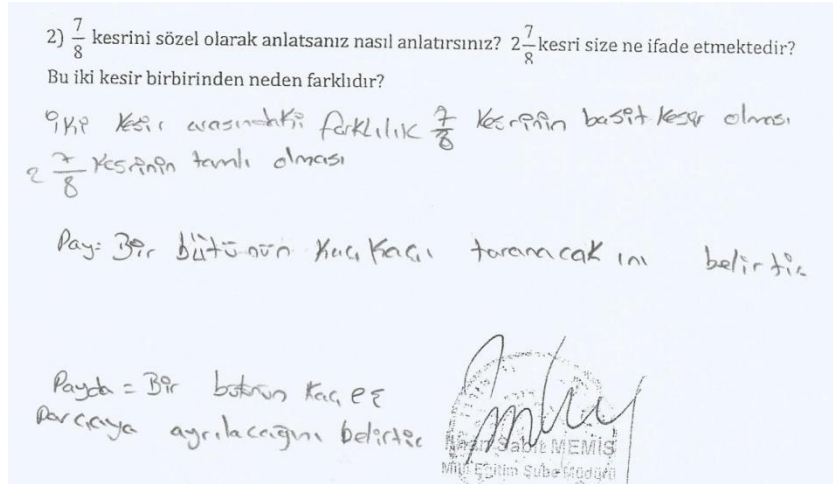 2) 7/8 kesrini sözel olarak anlatsanız nasıl anlatırsınız? 2 7/8 kesri size ne ifade etmektedir?
Bu iki kesir birbirinden neden farklıdır?
iki kesir arasındaki farklılık 7/8 kesrinin basit kesir olması
2 7/8 kesrinin tamlı olması
Pay: Bir bütünün kaç kaçı taranacak ını belirtir
Payda = Bir bütünün kaç eş
parçaya ayrılacağını belirtir
Sabit MEMİŞ
Milli Eğitim Şube Müdürü